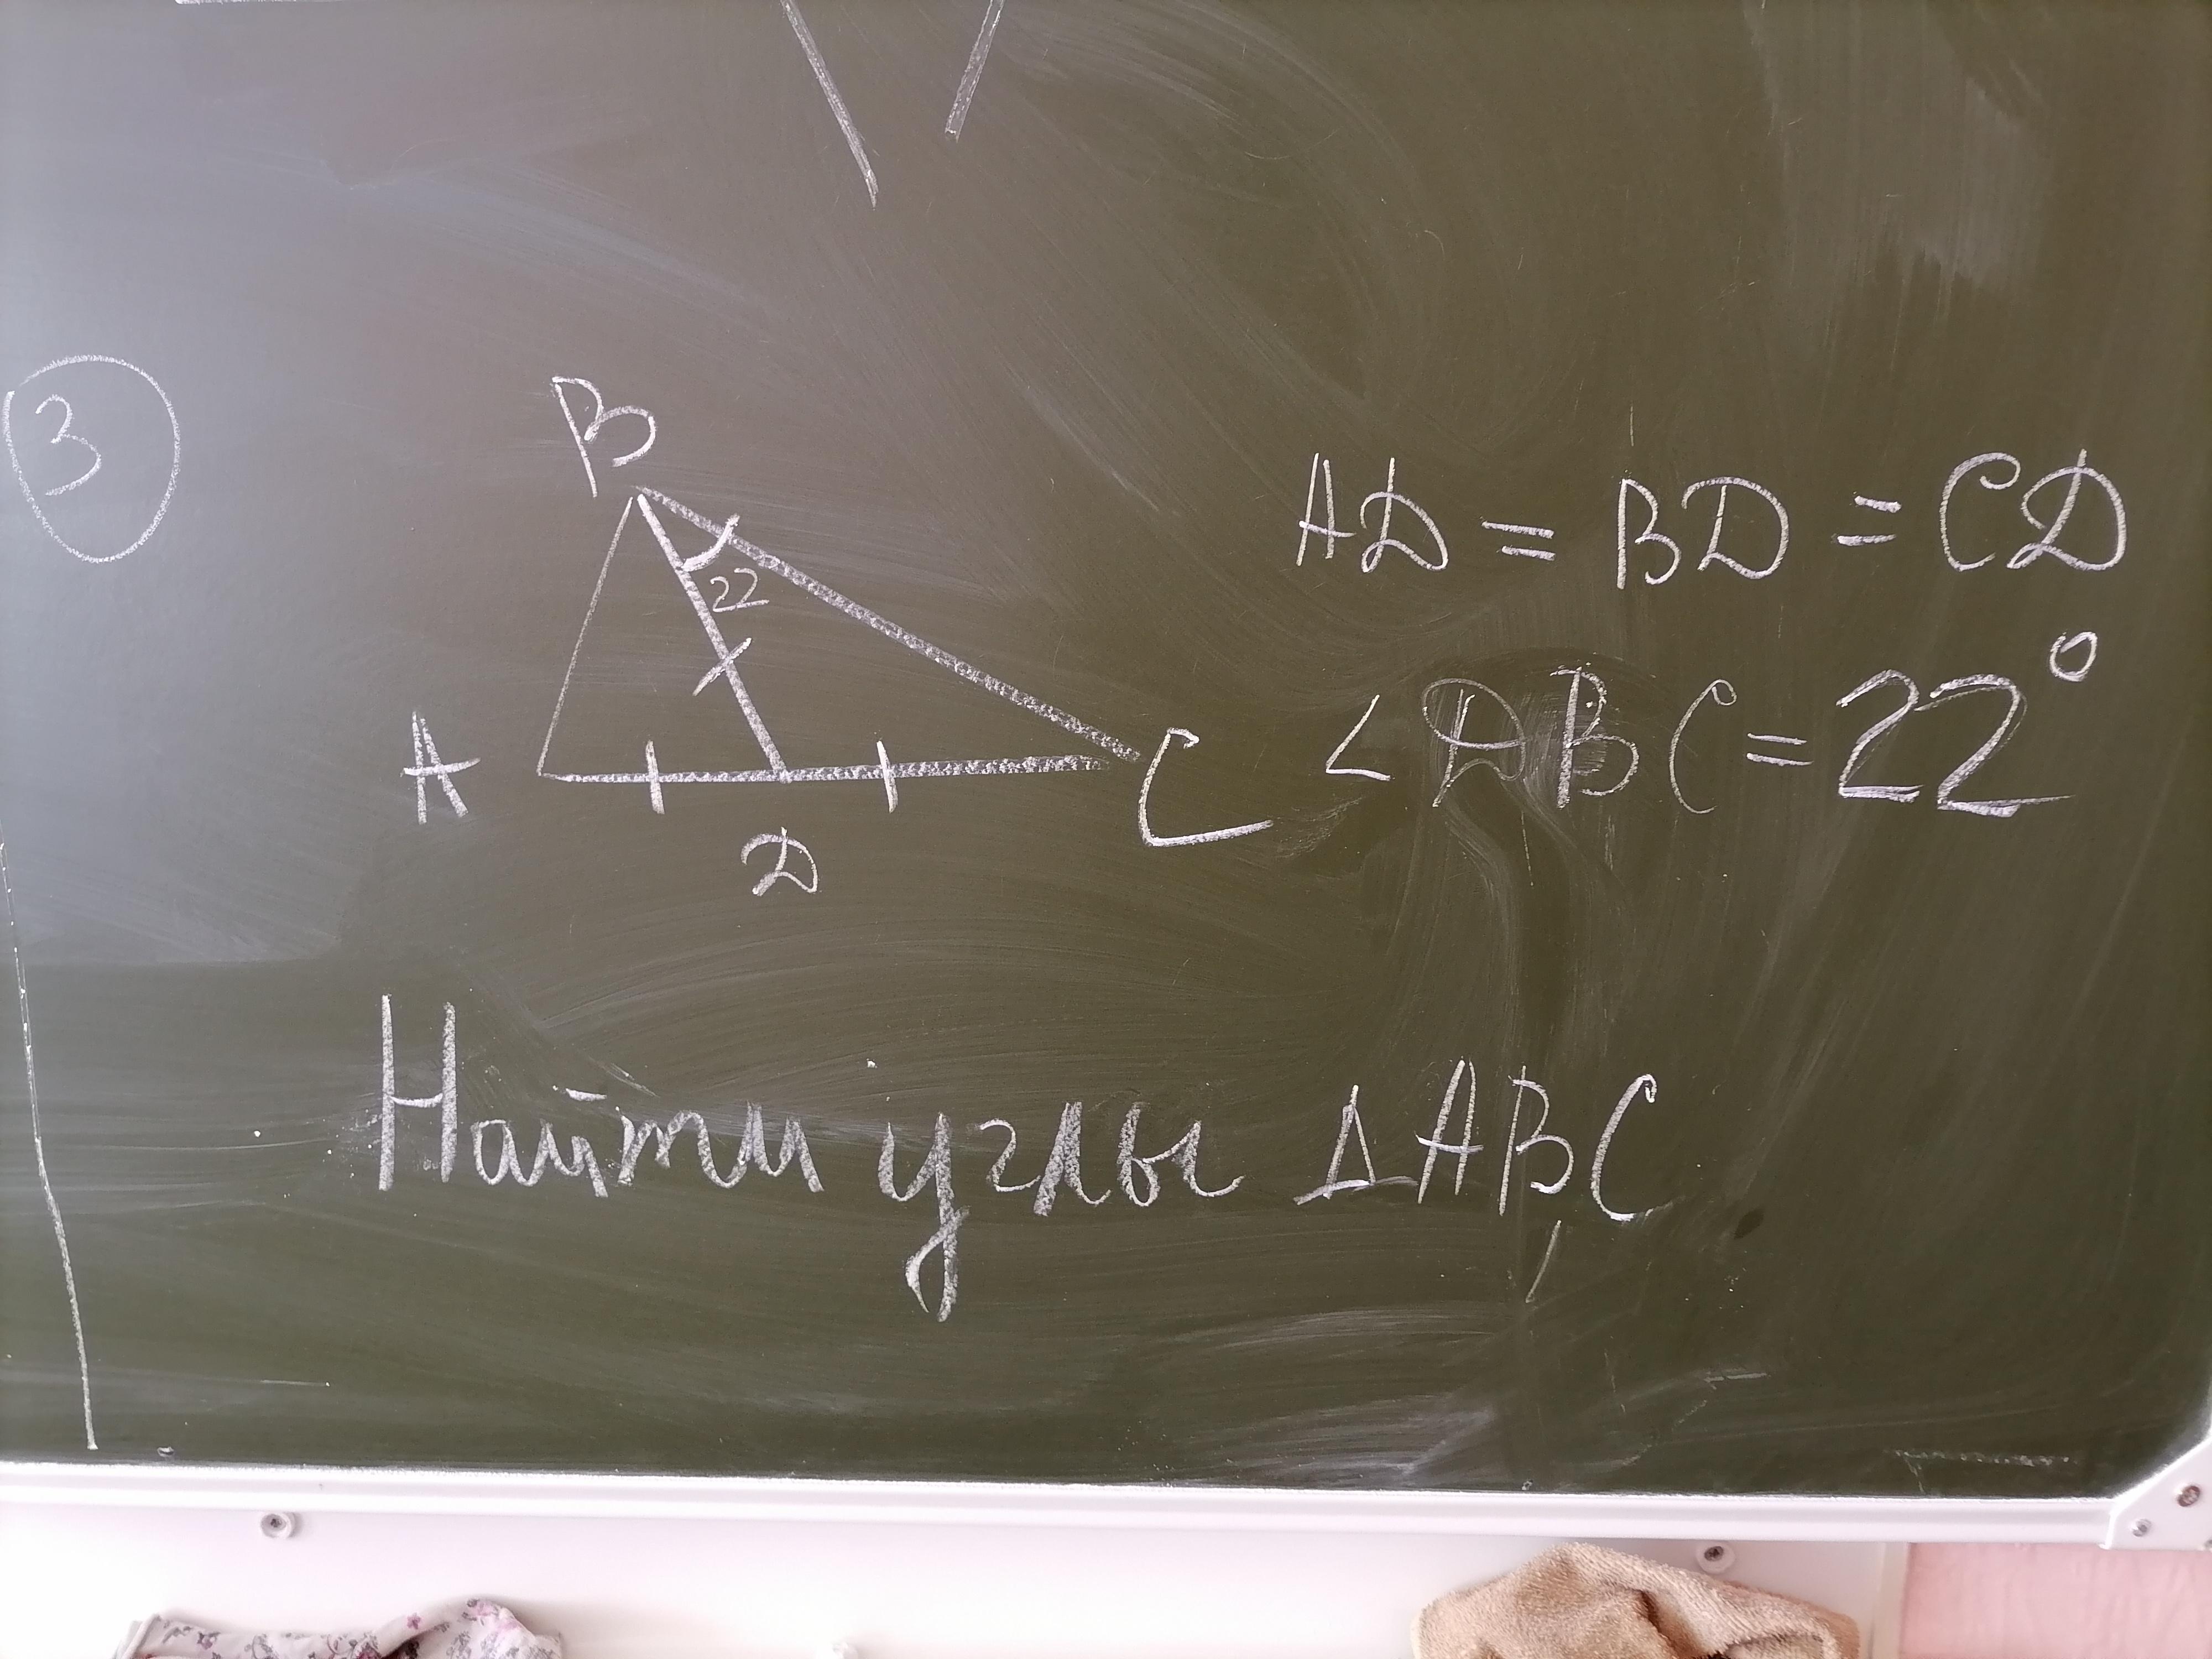 3
B
22
A
C
D
AD = BD = CD
∠DBC = 22°
Найти углы ΔABC